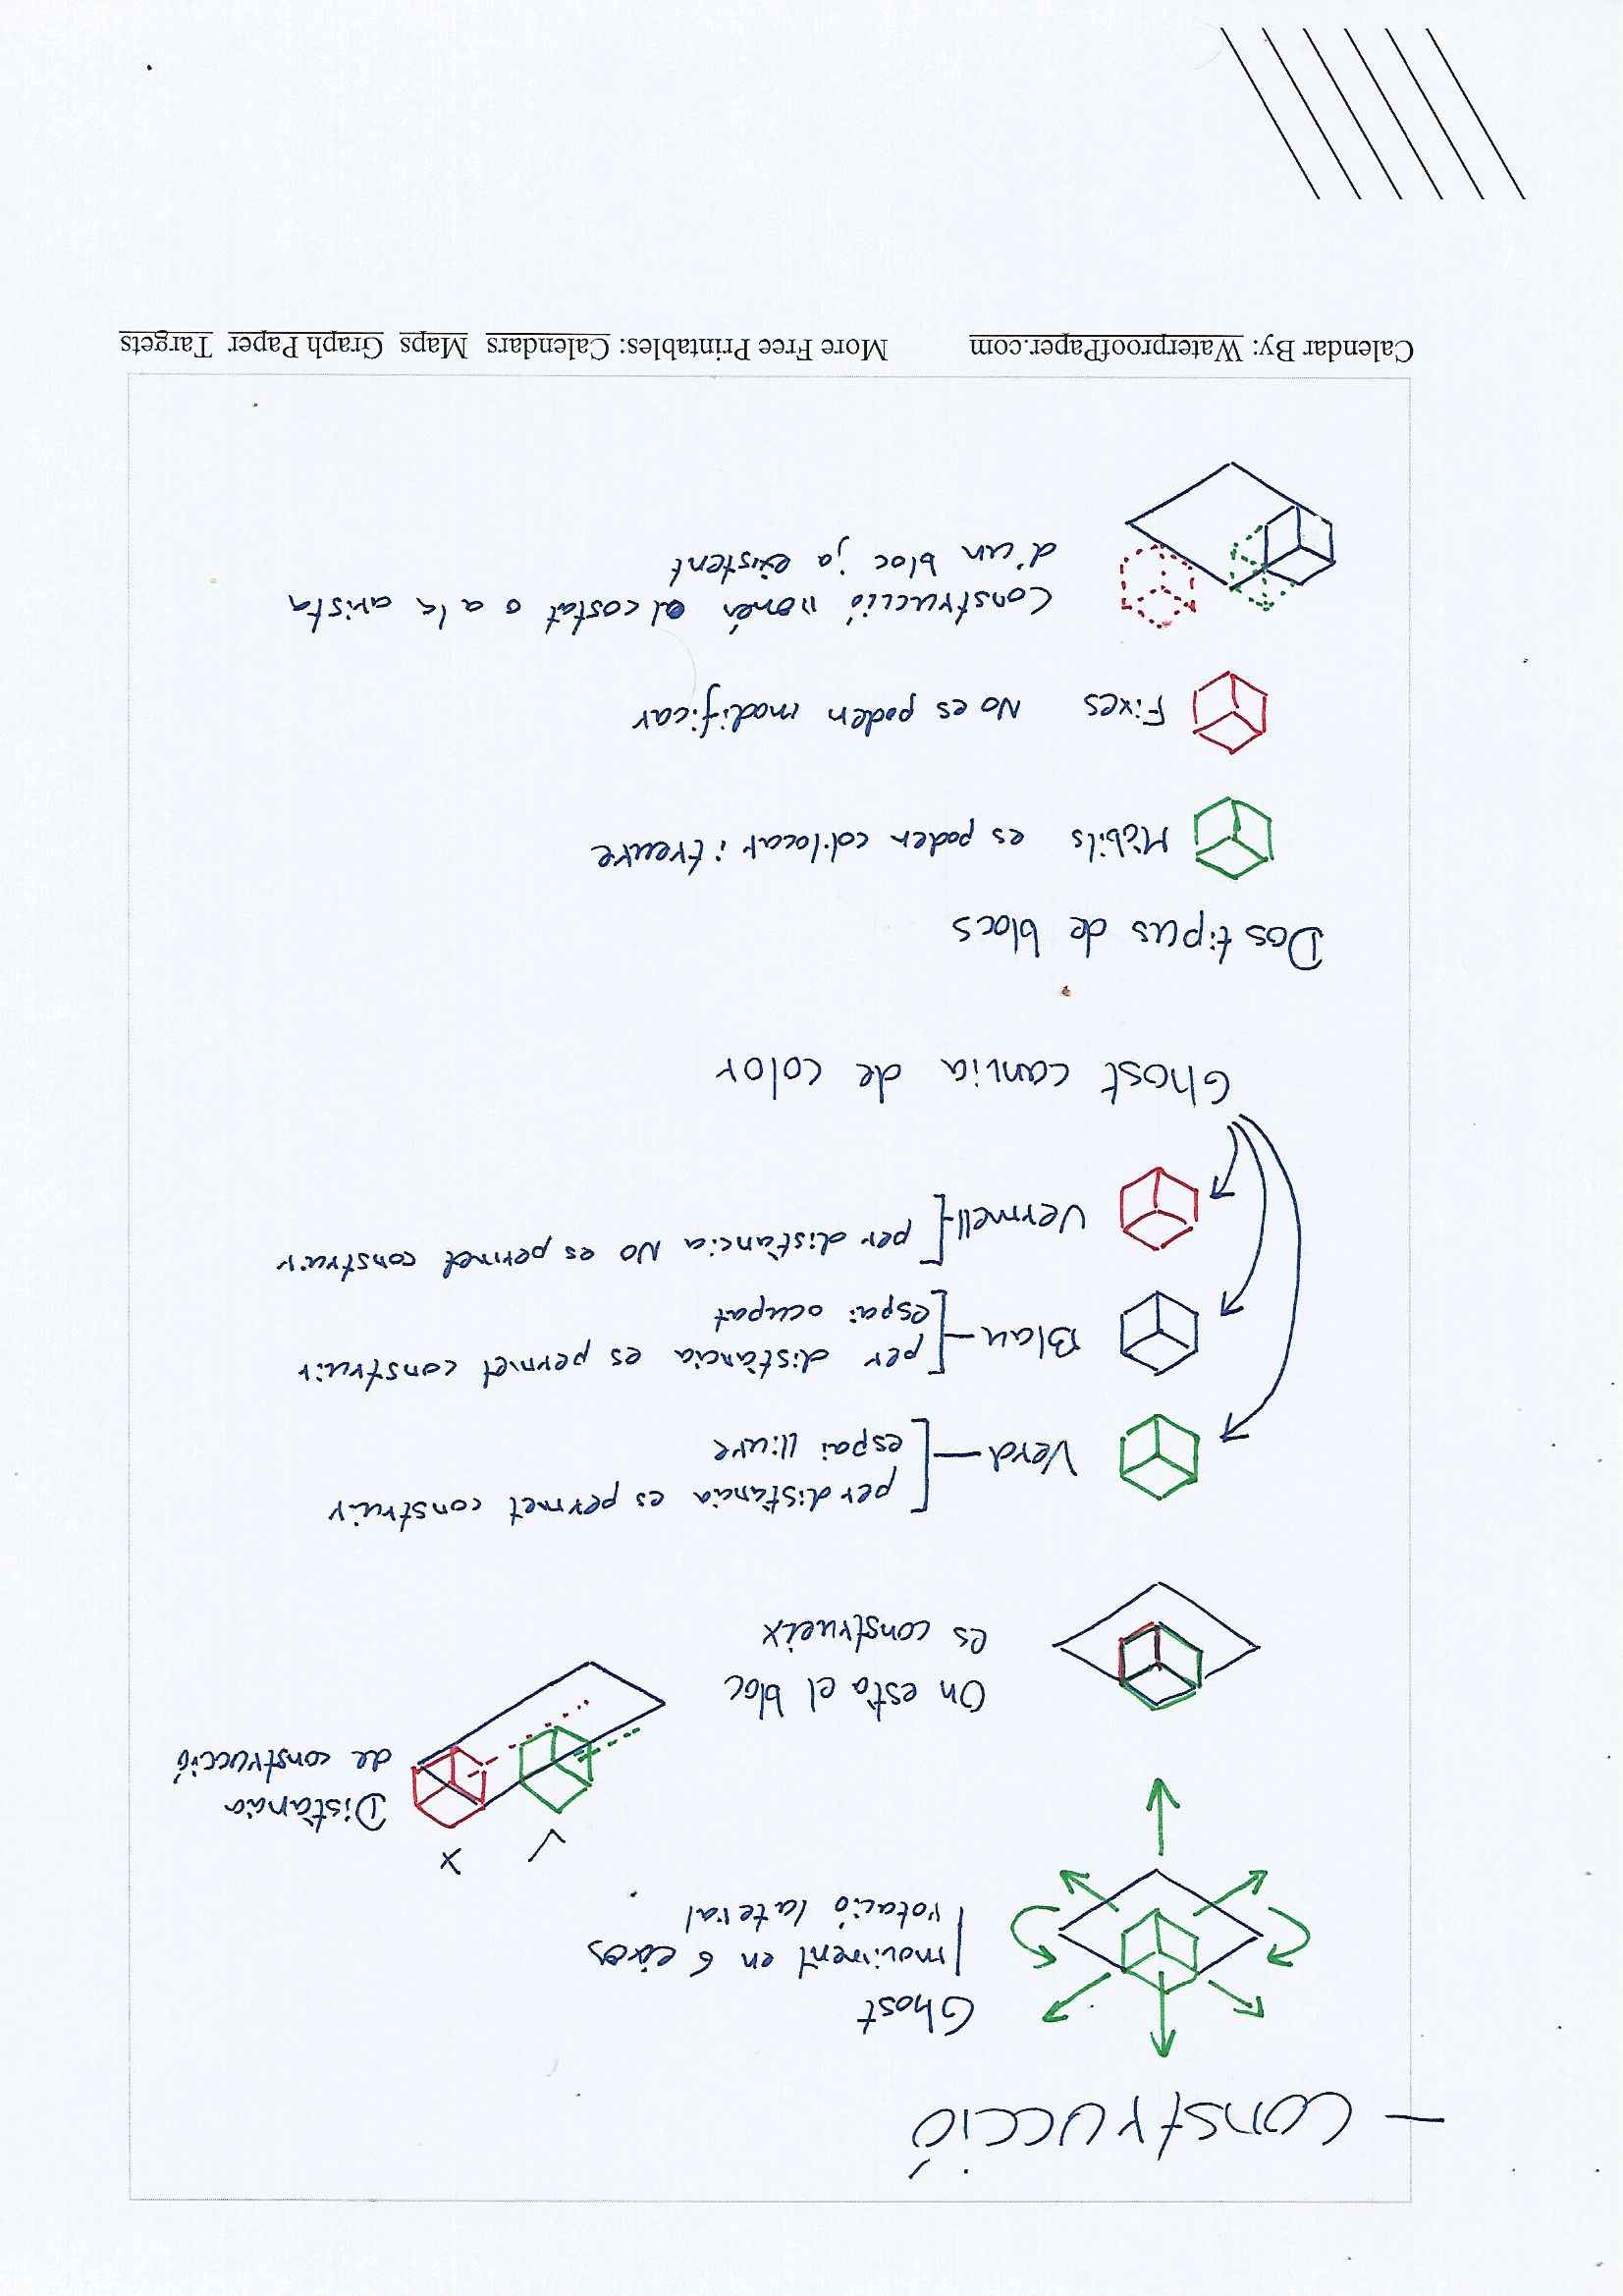 – Construcció
Ghost
moviment en 6 eixos
rotació lateral
✓ x
Distància
de construcció
On està el bloc
es construeix
Verd — per distància es permet construir
espai lliure
Blau — per distància es permet construir
espai ocupat
Vermell — per distància NO es permet construir
Ghost canvia de color
Dos tipus de blocs
Mòbils es poden col·locar i treure
Fixes No es poden modificar
Construcció només al costat o a la arista
d'un bloc ja existent
Calendar By: WaterproofPaper.com More Free Printables: Calendars Maps Graph Paper Targets